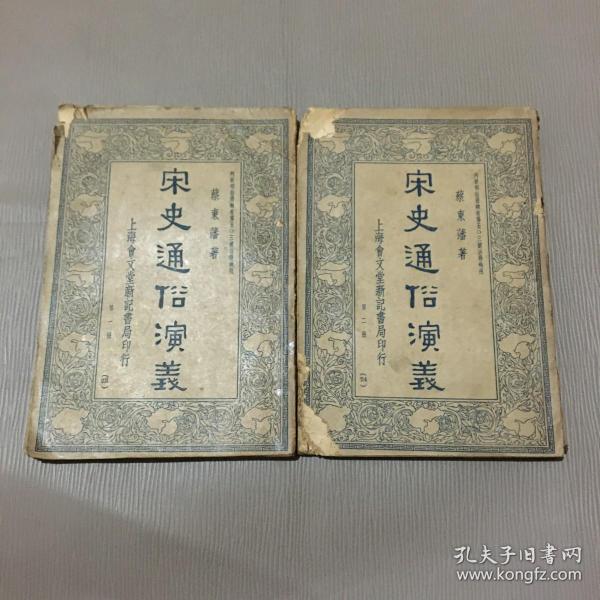 蔡東藩著
宋史通俗演義
上海會文堂新記書局印行
第一册
蔡東藩著
宋史通俗演義
上海會文堂新記書局印行
第二册
孔夫子旧书网
www.kongfz.com